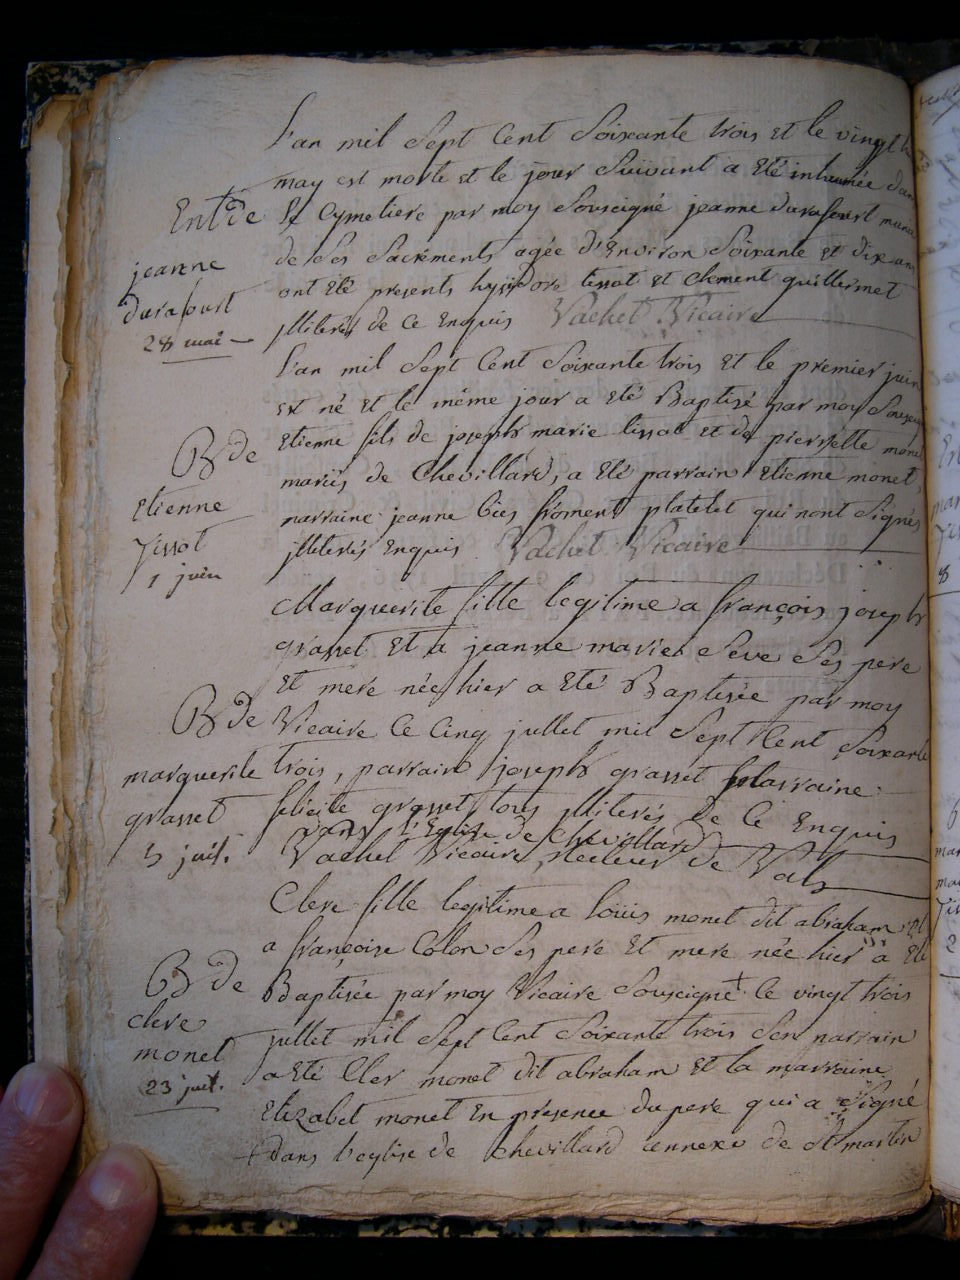 L'an mil Sept Cent Soixante trois Et le vingt h
may est morte et le jour Suivant a Eté inhumée dan
Ent de
le Cymetiere par moy Souscigné jeanne durafourt munie
jeanne
de Ses Sacréments agée d'Environ Soixante et dix ans
durafourt
ont Eté presents hyssidore tissot et Clement quillermet
28 mai
jlliterés de Ce Enquis Vachet Vicaire
L'an mil Sept Cent Soixante trois Et le premier juin
Est né Et le même jour a Eté Baptisé par moy Souscig
B de
Etienne fils de joseph marie tissot Et de pierrette monet
Etienne
mariés de Chevillard, a Eté parrain Etienne monet,
Tissot
marraine jeanne froment platelet qui nont Signés
1 juin
jlliterés Enquis Vachet Vicaire
Marguerite fille legitime a françois joseph
grasset Et a jeanne marie Seve Ses pere
Et mere née hier a Eté Baptisée par moy
B de
Vicaire Ce Cinq jullet mil Sept Cent Soixante
marguerite
trois, parrain joseph grasset marraine
grasset
felicité grasset tous jlliterés de Ce Enquis
dans l'Eglise de Chevillard
5 juil.
Vachet Vicaire,
Clere fille legitime a loüis monet dit abraham et
a françoise Colon Ses pere Et mere née hier a Eté
B de
Baptisée par moy Vicaire Souscigné + Ce vingt trois
clere
jullet mil Sept Cent Soixante trois Son parrain
monet
a Eté Cler monet dit abraham Et la marraine
23 juil.
Elizabet monet En presence du pere qui a Signé
+ dans l'eglise de Chevillard annexe de St martin